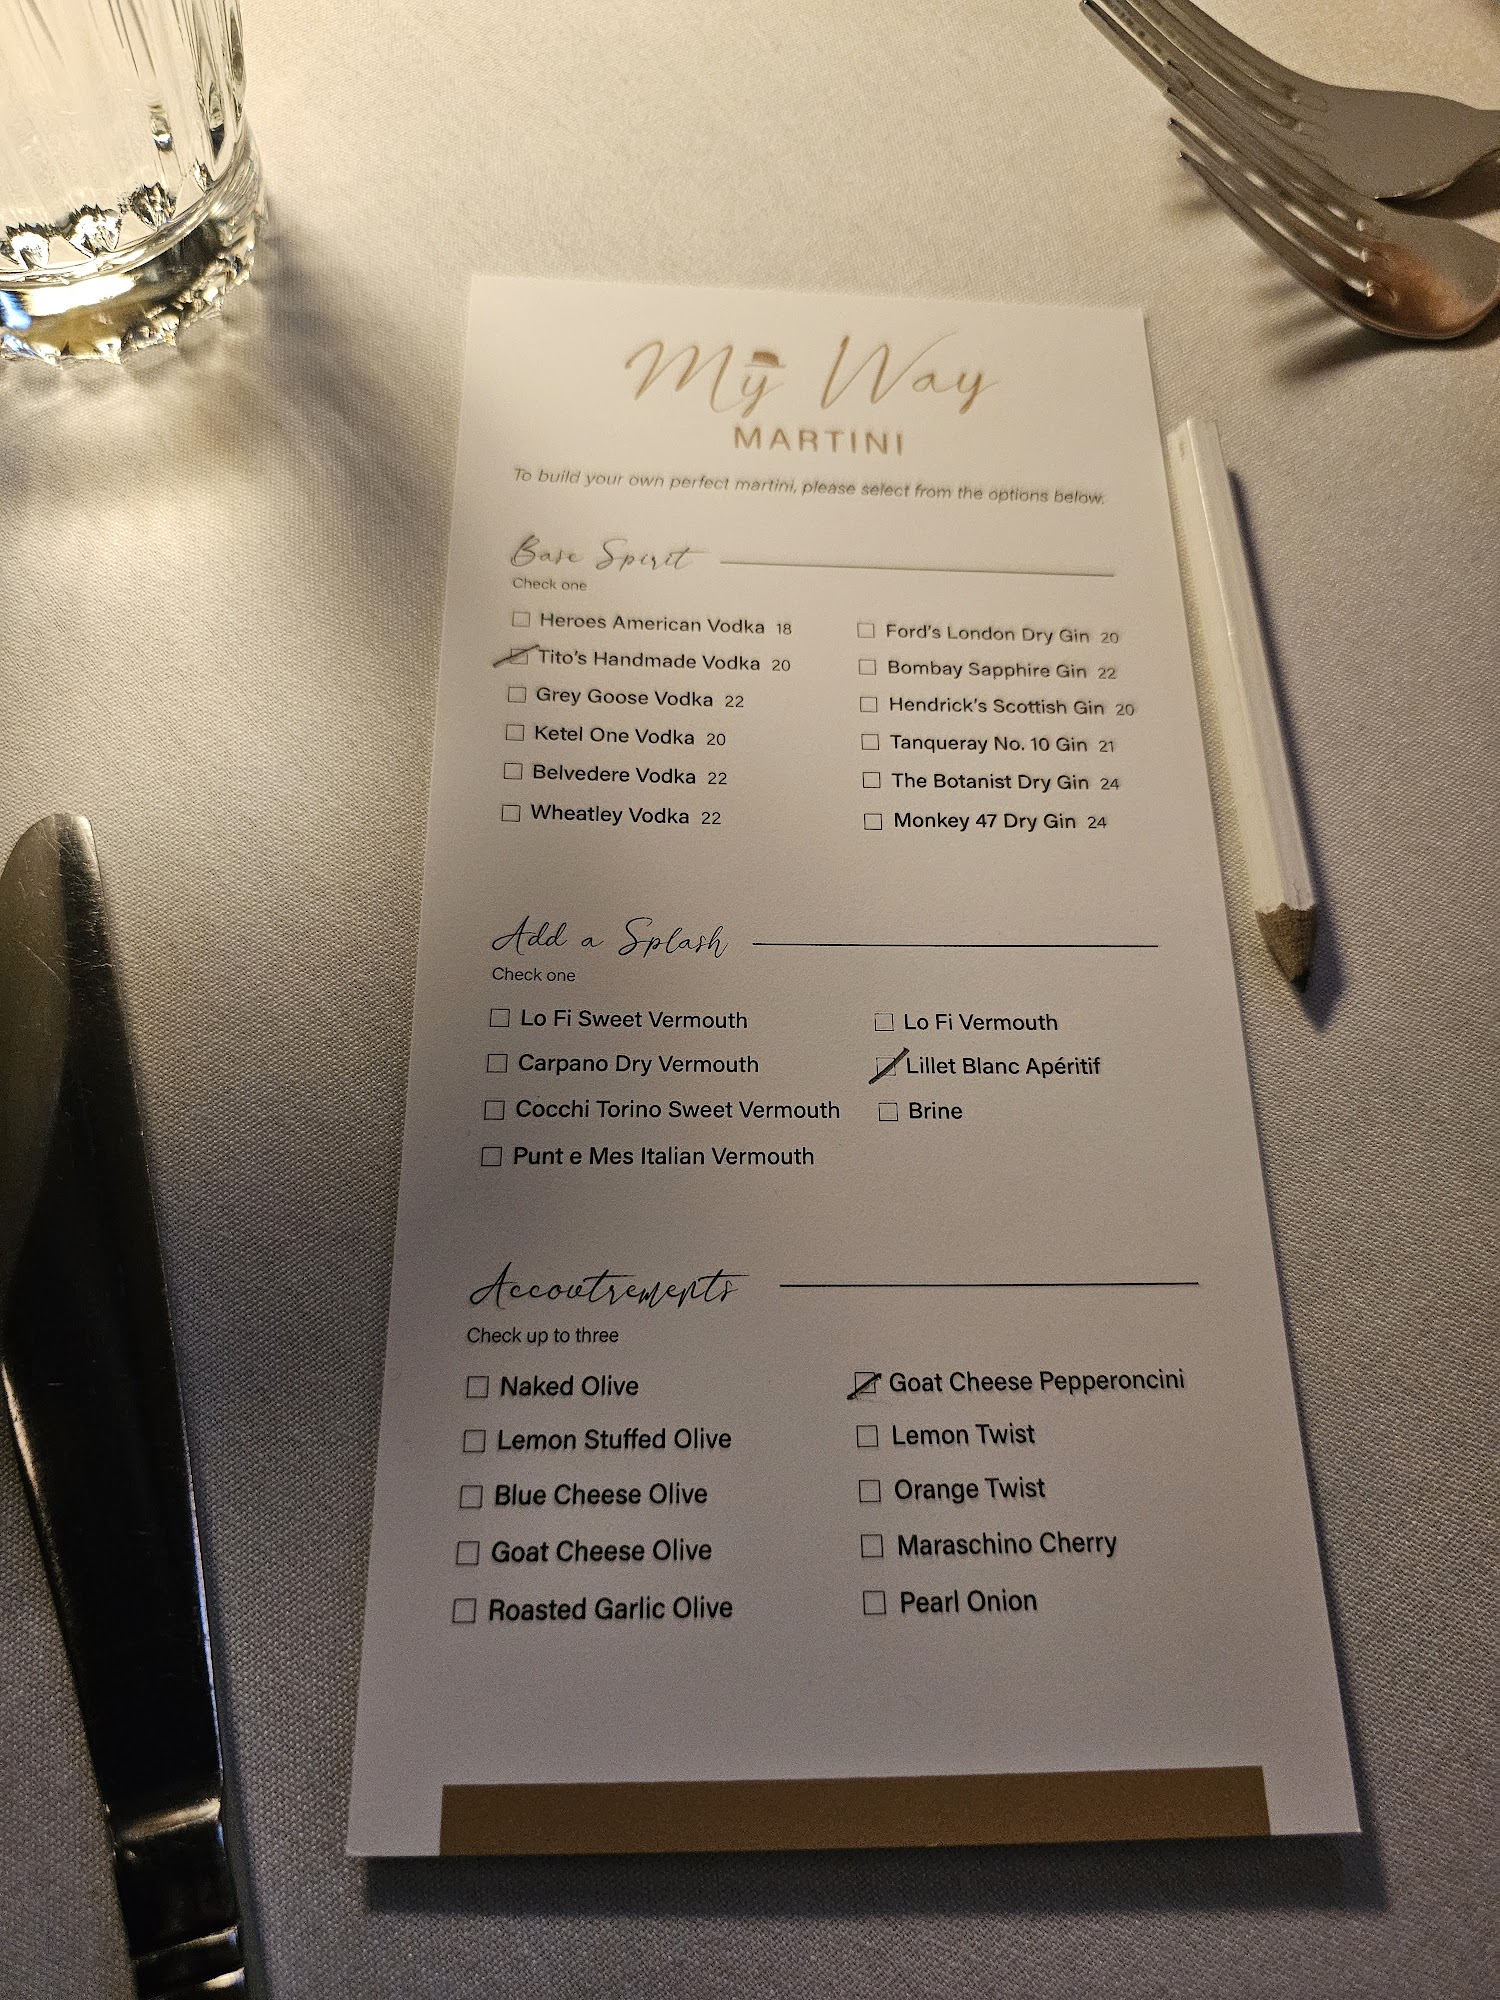 My Way
MARTINI
To build your own perfect martini, please select from the options below.
Base Spirit
Check one
Heroes American Vodka 18
Tito's Handmade Vodka 20
Grey Goose Vodka 22
Ketel One Vodka 20
Belvedere Vodka 22
Wheatley Vodka 22
Ford's London Dry Gin 20
Bombay Sapphire Gin 22
Hendrick's Scottish Gin 20
Tanqueray No. 10 Gin 21
The Botanist Dry Gin 24
Monkey 47 Dry Gin 24
Add a Splash
Check one
Lo Fi Sweet Vermouth
Carpano Dry Vermouth
Cocchi Torino Sweet Vermouth
Punt e Mes Italian Vermouth
Lo Fi Vermouth
Lillet Blanc Apéritif
Brine
Accoutrements
Check up to three
Naked Olive
Lemon Stuffed Olive
Blue Cheese Olive
Goat Cheese Olive
Roasted Garlic Olive
Goat Cheese Pepperoncini
Lemon Twist
Orange Twist
Maraschino Cherry
Pearl Onion